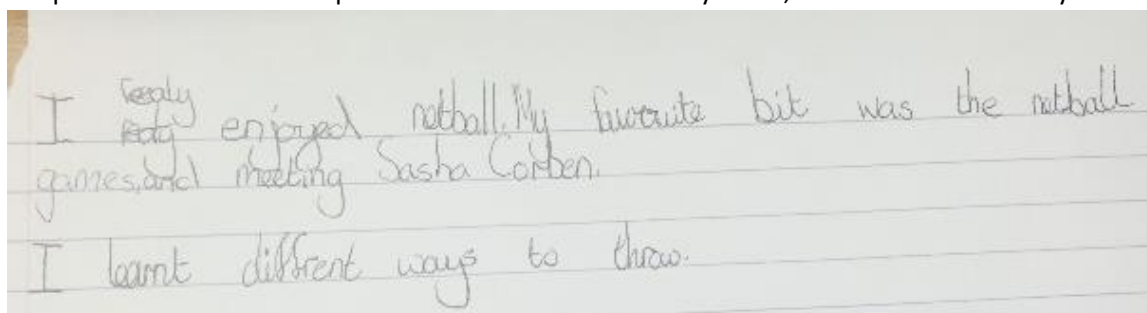 I really enjoyed netball. My favourite bit was the netball
games, and meeting Sasha Corben.
I learnt diffrent ways to throw.